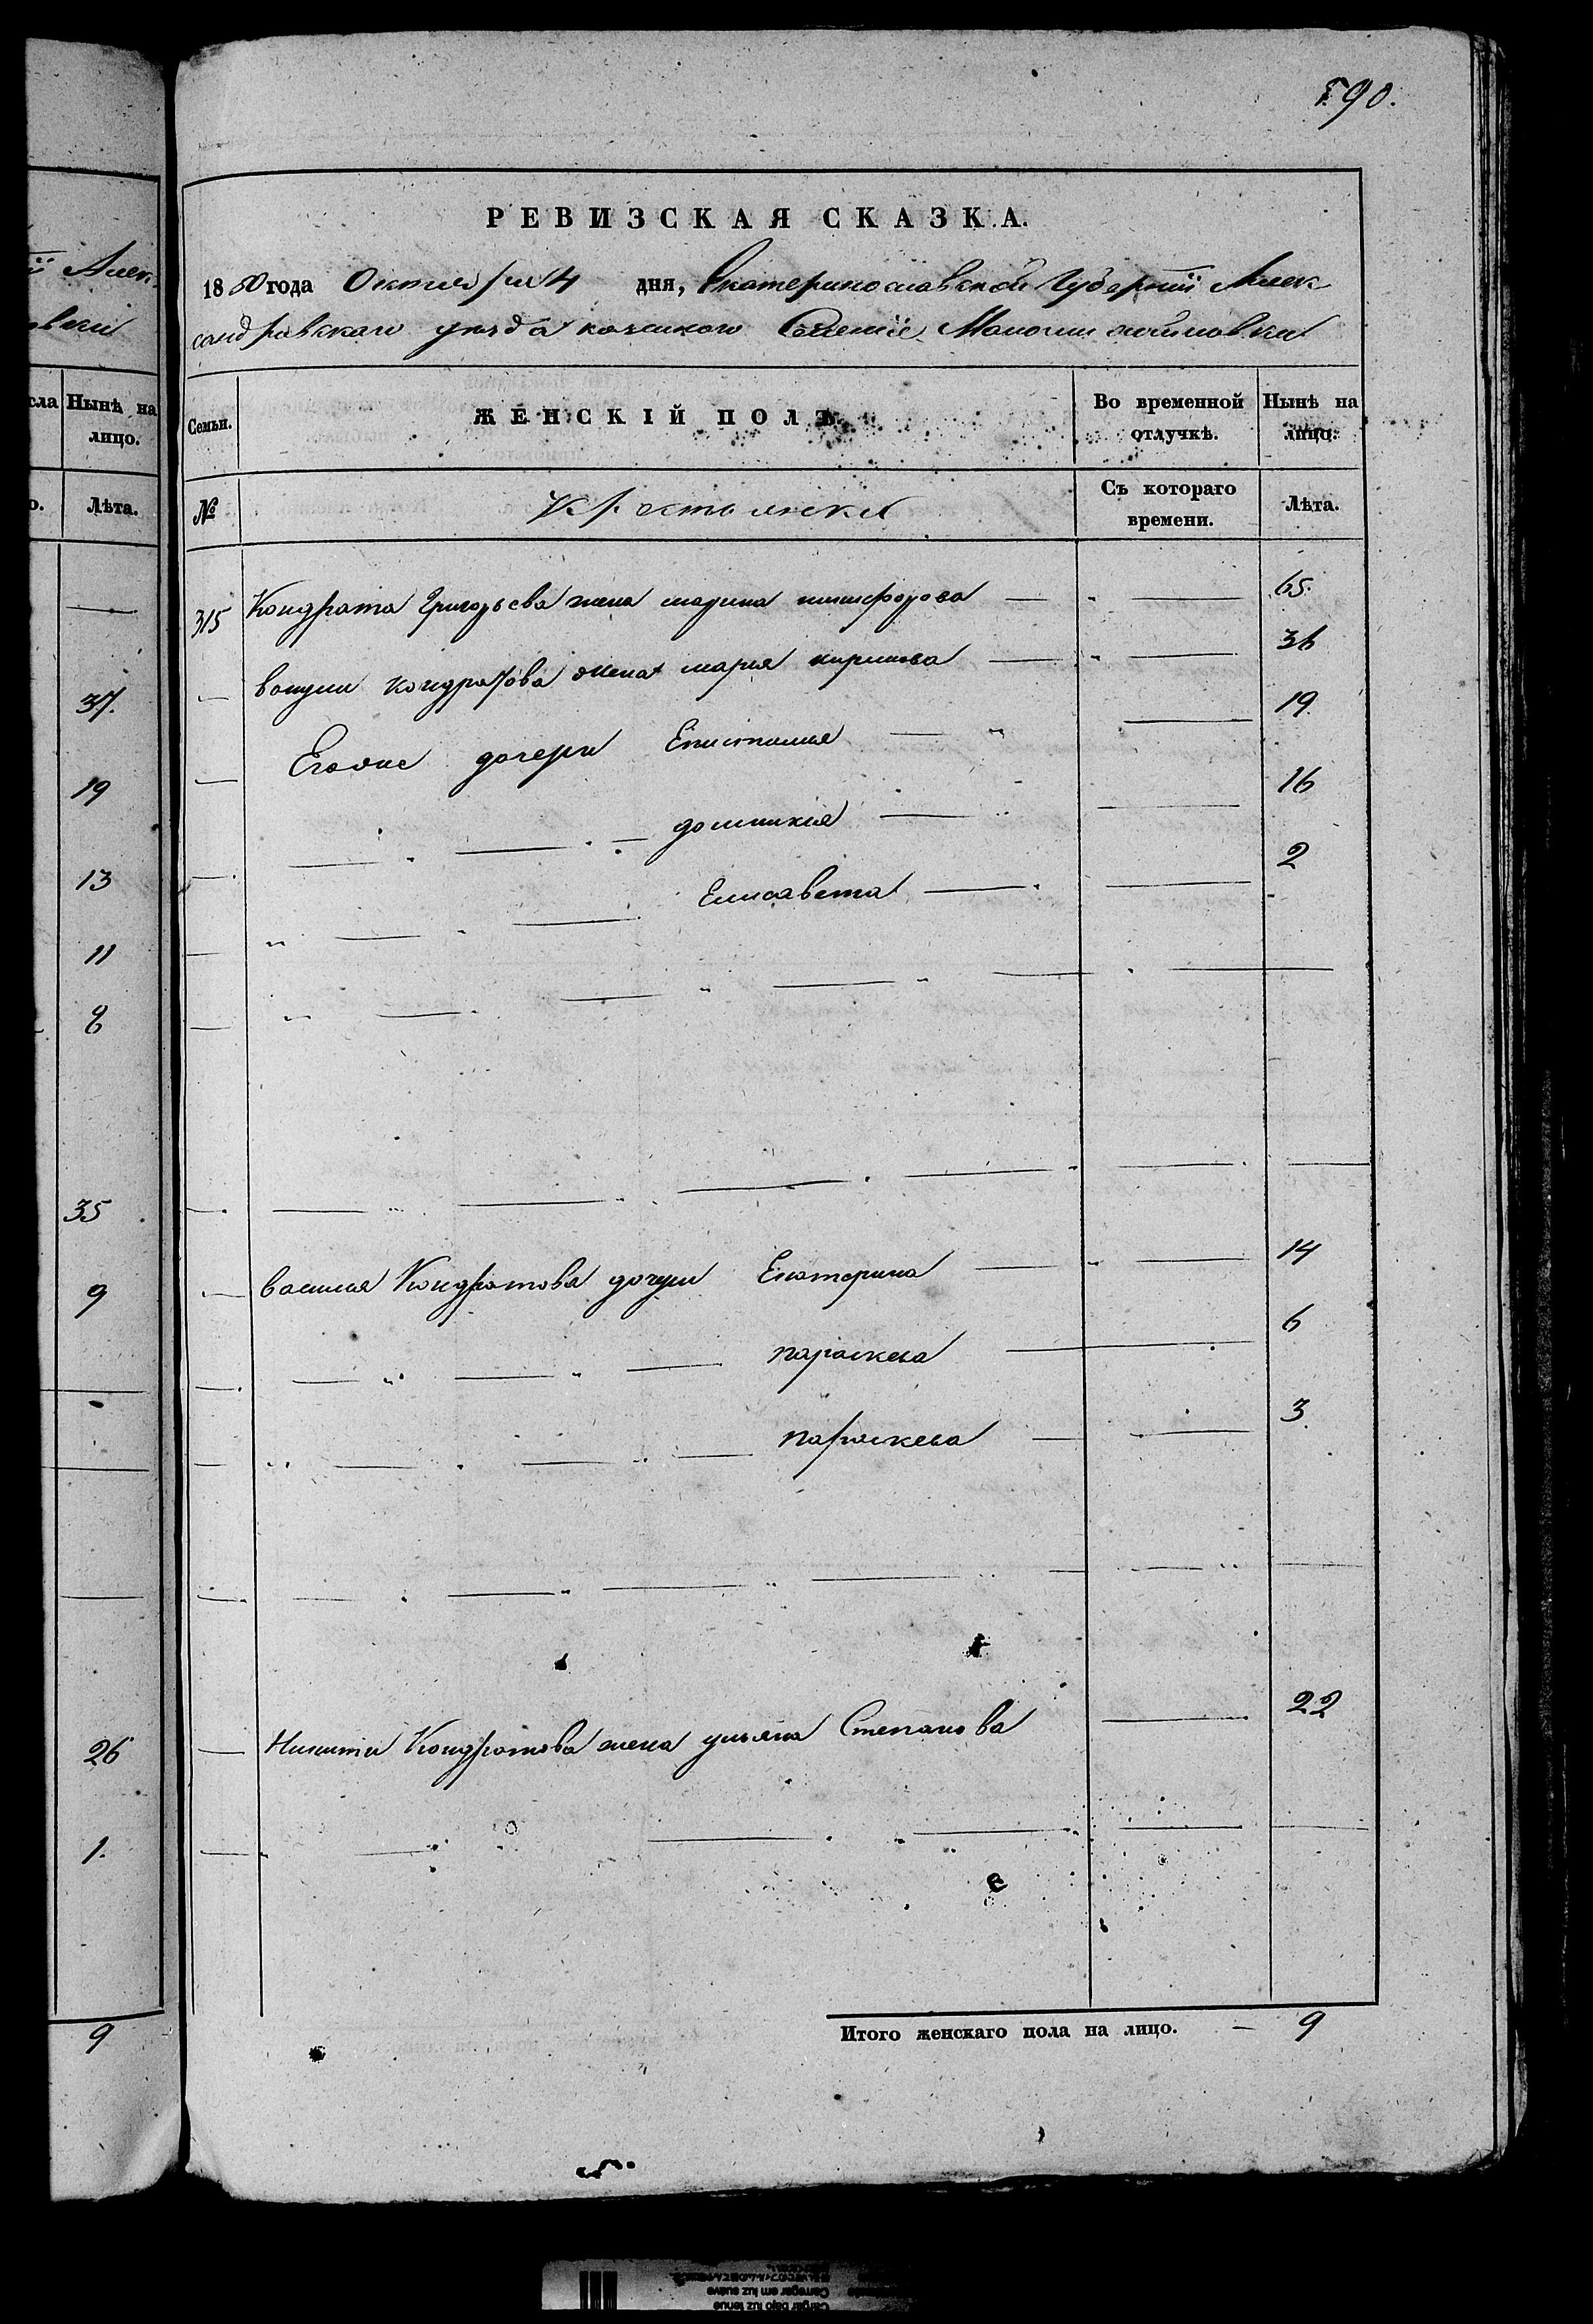 590.
Алек-
РЕВИЗСКАЯ СКАЗКА.
1850 года Октября 4 дня, Екатеринославской Губернии Алек
сандровскаго уезда казеннаго Селения
сла
Нынѣ на
лицо.
Семьи.
ЖЕНСКІЙ ПОЛЪ.
Во временной
отлучкѣ.
Нынѣ на
лицо.
о.
Лѣта.
№
Крестьянски
Съ котораго
времени.
Лѣта.
315 Кондрата Григорьева жена марина никифорова 65.
кондратова жена мария кирилова 36
37.
Егоже дочери Епистимия 19.
19
домникия 16
13
Елисавета 2
11
8
35
василия Кондратова дочери Екатерина 14
9
параскева 6
параскева 3
Никиты Кондратова жена ульяна Степанова 22
26
1.
9
Итого женскаго пола на лицо. — 9